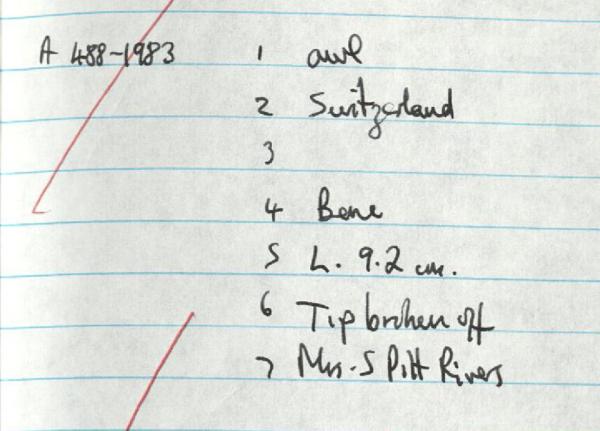 A 488-1983 1 awl
2 Switzerland
3
4 Bone
5 L. 9.2 cm.
6 Tip broken off
7 Mrs. S Pitt Rivers